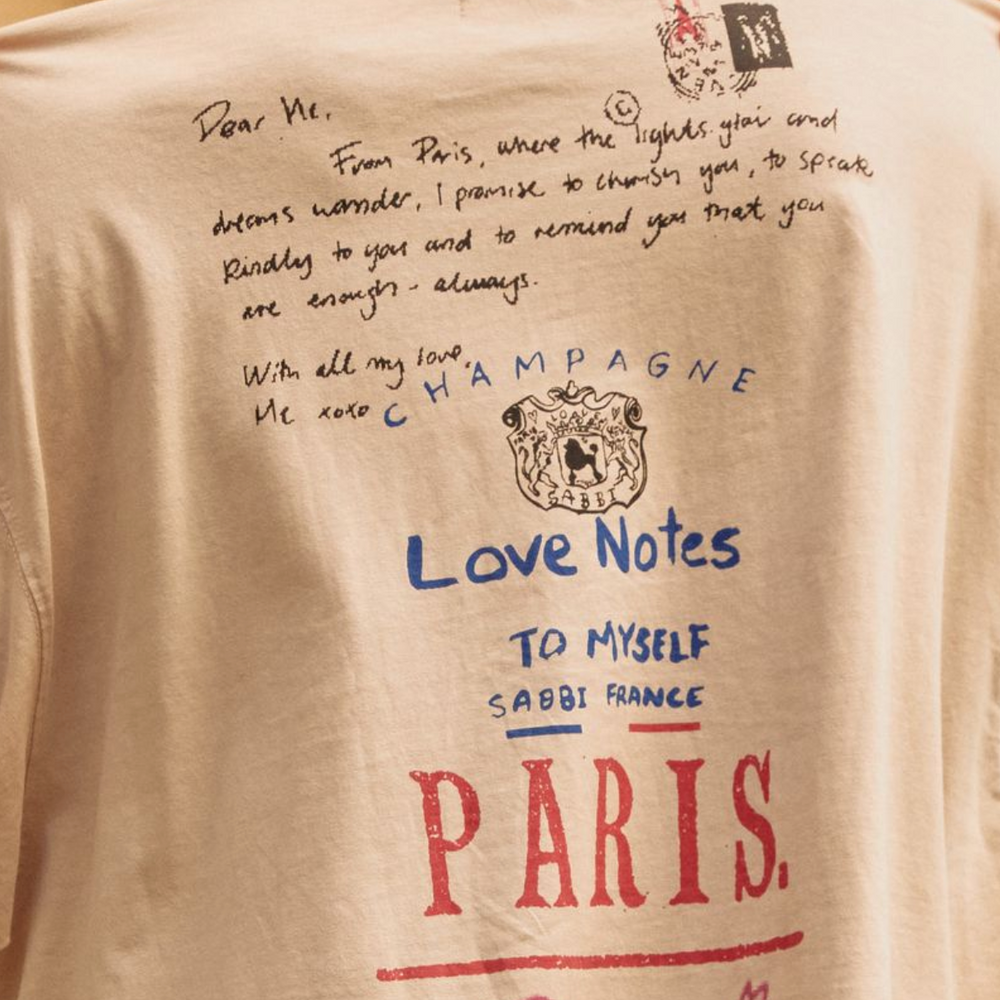 Dear Me,
©
From Paris, where the lights glow and
dreams wander, I promise to cherish you, to speak
kindly to you and to remind you that you
are enough - always.
With all my love,
Me xoxo
CHAMPAGNE
SABBI
Love Notes
TO MYSELF
SABBI FRANCE
PARIS.